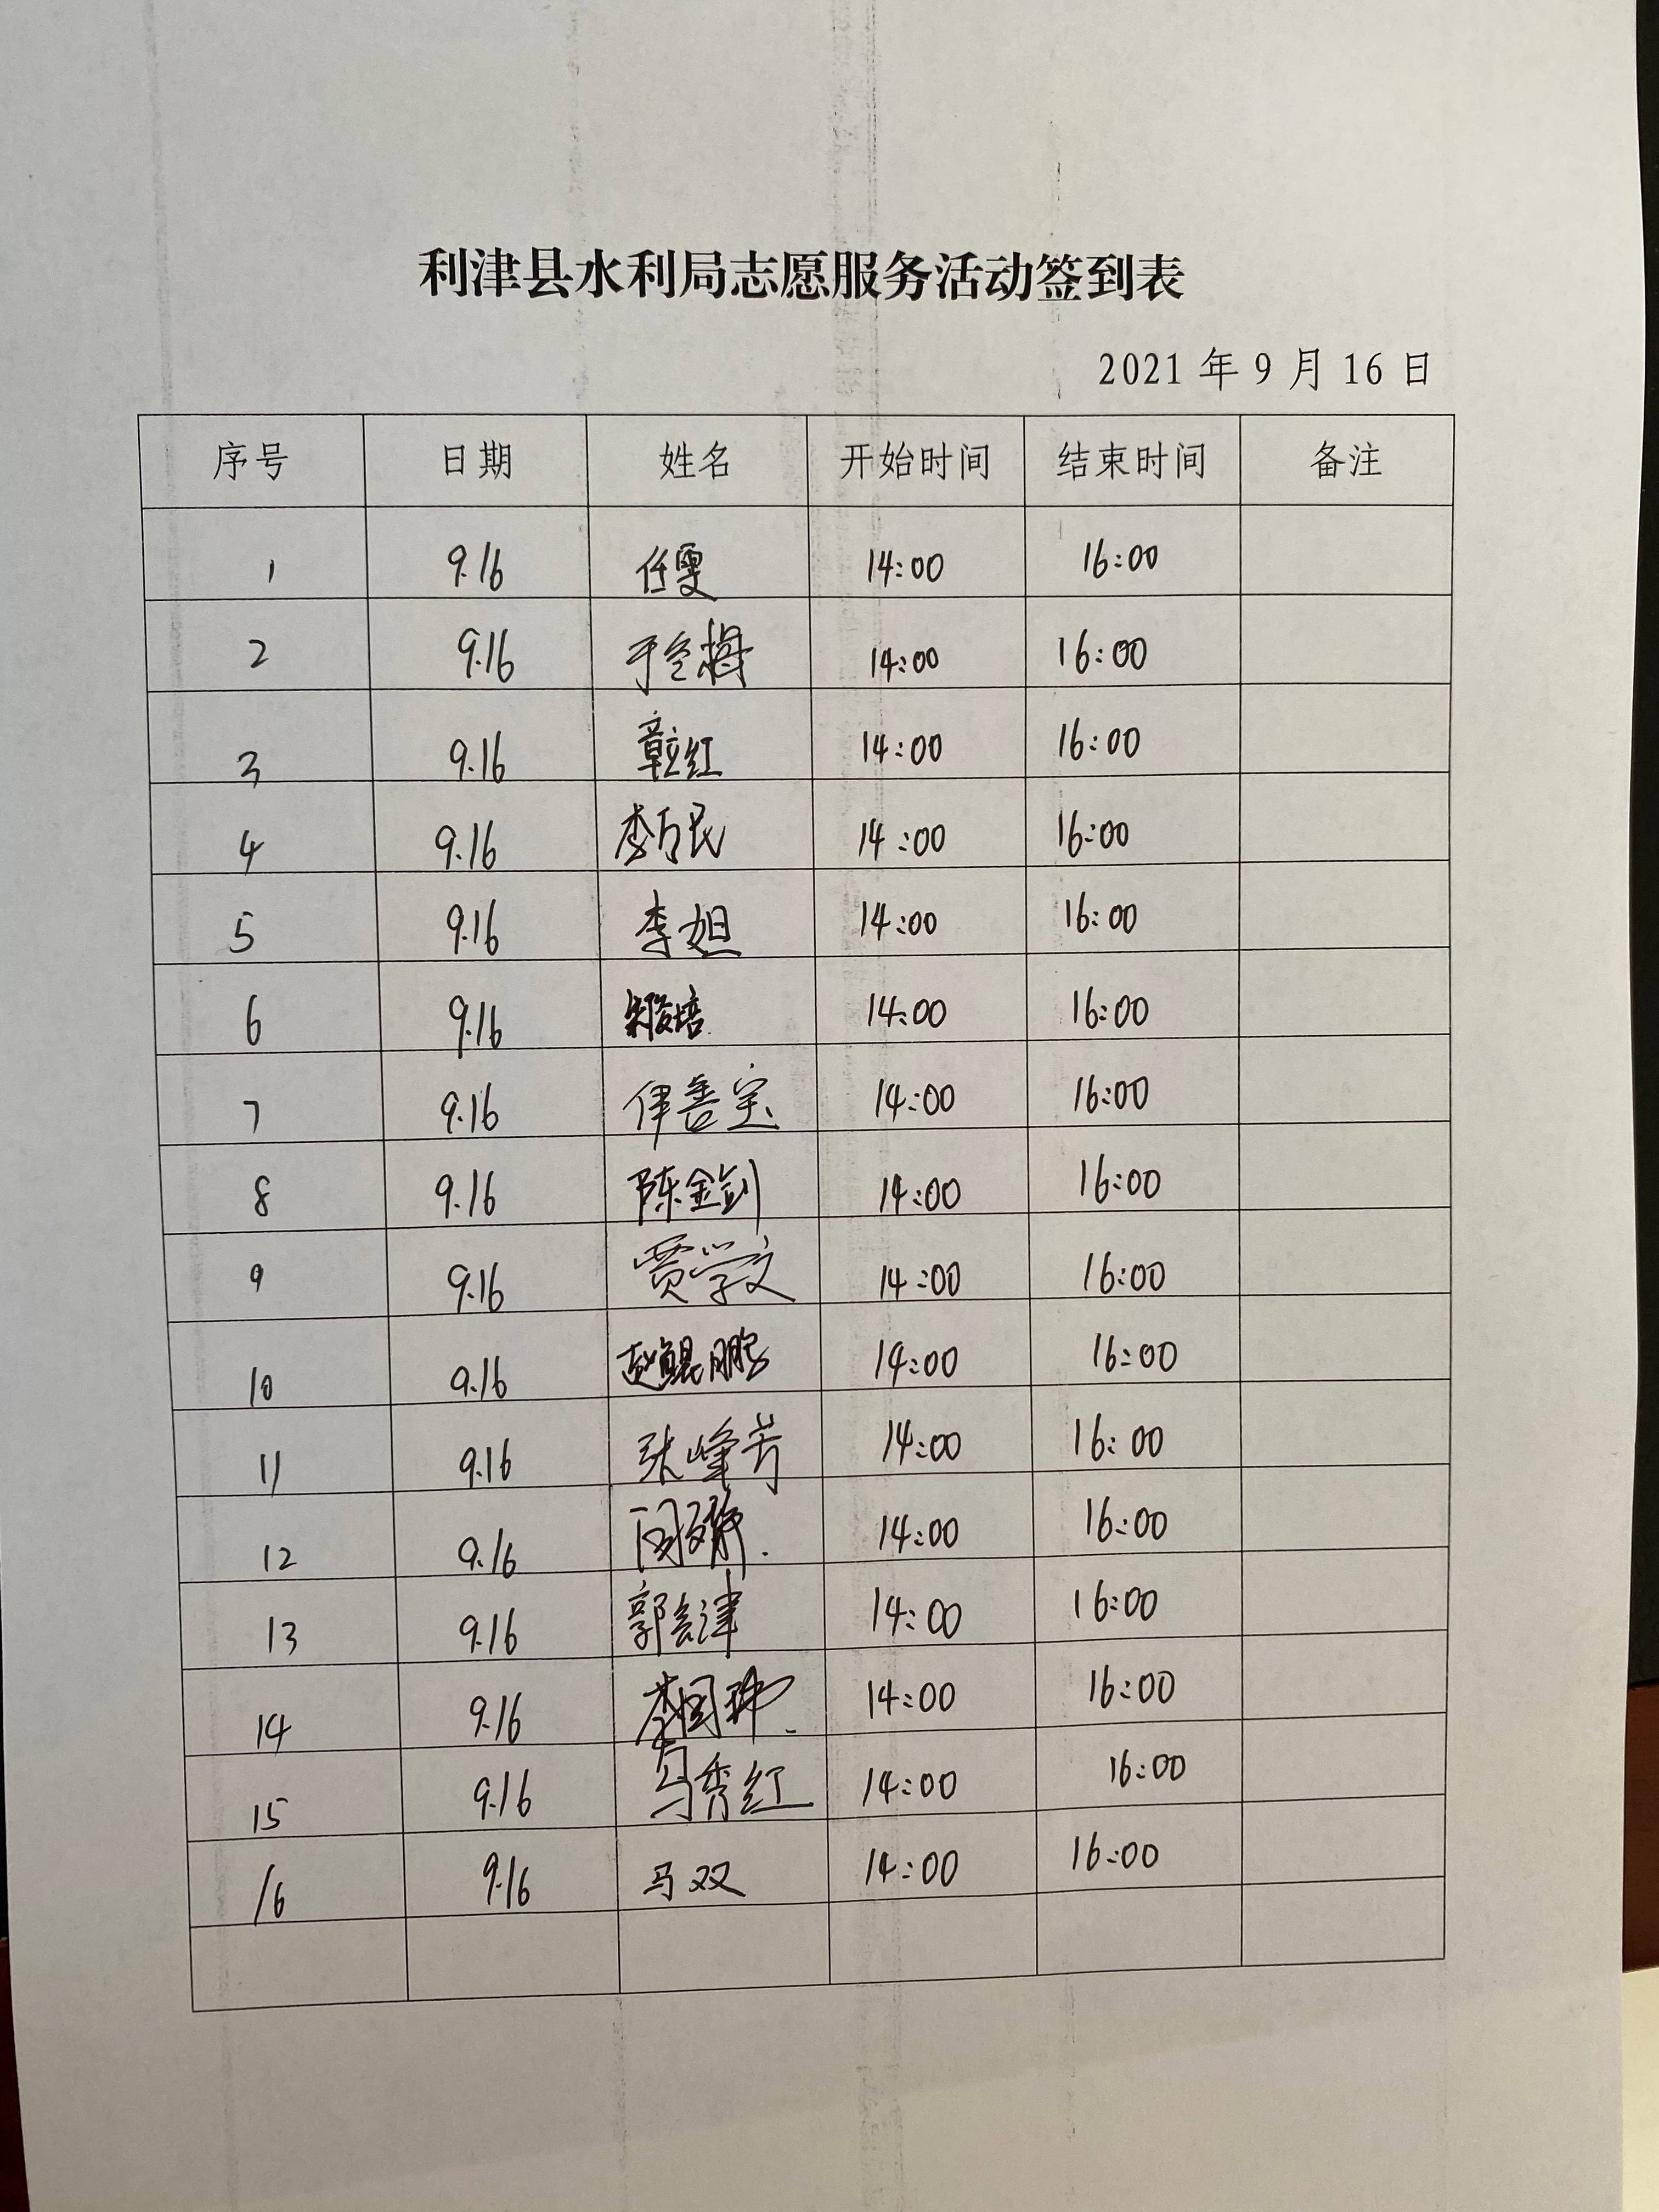 利津县水利局志愿服务活动签到表
2021 年 9 月 16 日
序号 日期 姓名 开始时间 结束时间 备注
1 9.16 任雯 14:00 16:00
2 9.16 14:00 16:00
3 9.16 章红 14:00 16:00
4 9.16 李万民 14:00 16:00
5 9.16 李妲 14:00 16:00
6 9.16 14:00 16:00
7 9.16 伊善宝 14:00 16:00
8 9.16 陈金剑 14:00 16:00
9 9.16 贾学文 14:00 16:00
10 9.16 赵鲲鹏 14:00 16:00
11 9.16 张峰芳 14:00 16:00
12 9.16 14:00 16:00
13 9.16 郭会津 14:00 16:00
14 9.16 李国珅 14:00 16:00
15 9.16 马秀红 14:00 16:00
16 9.16 马双 14:00 16:00